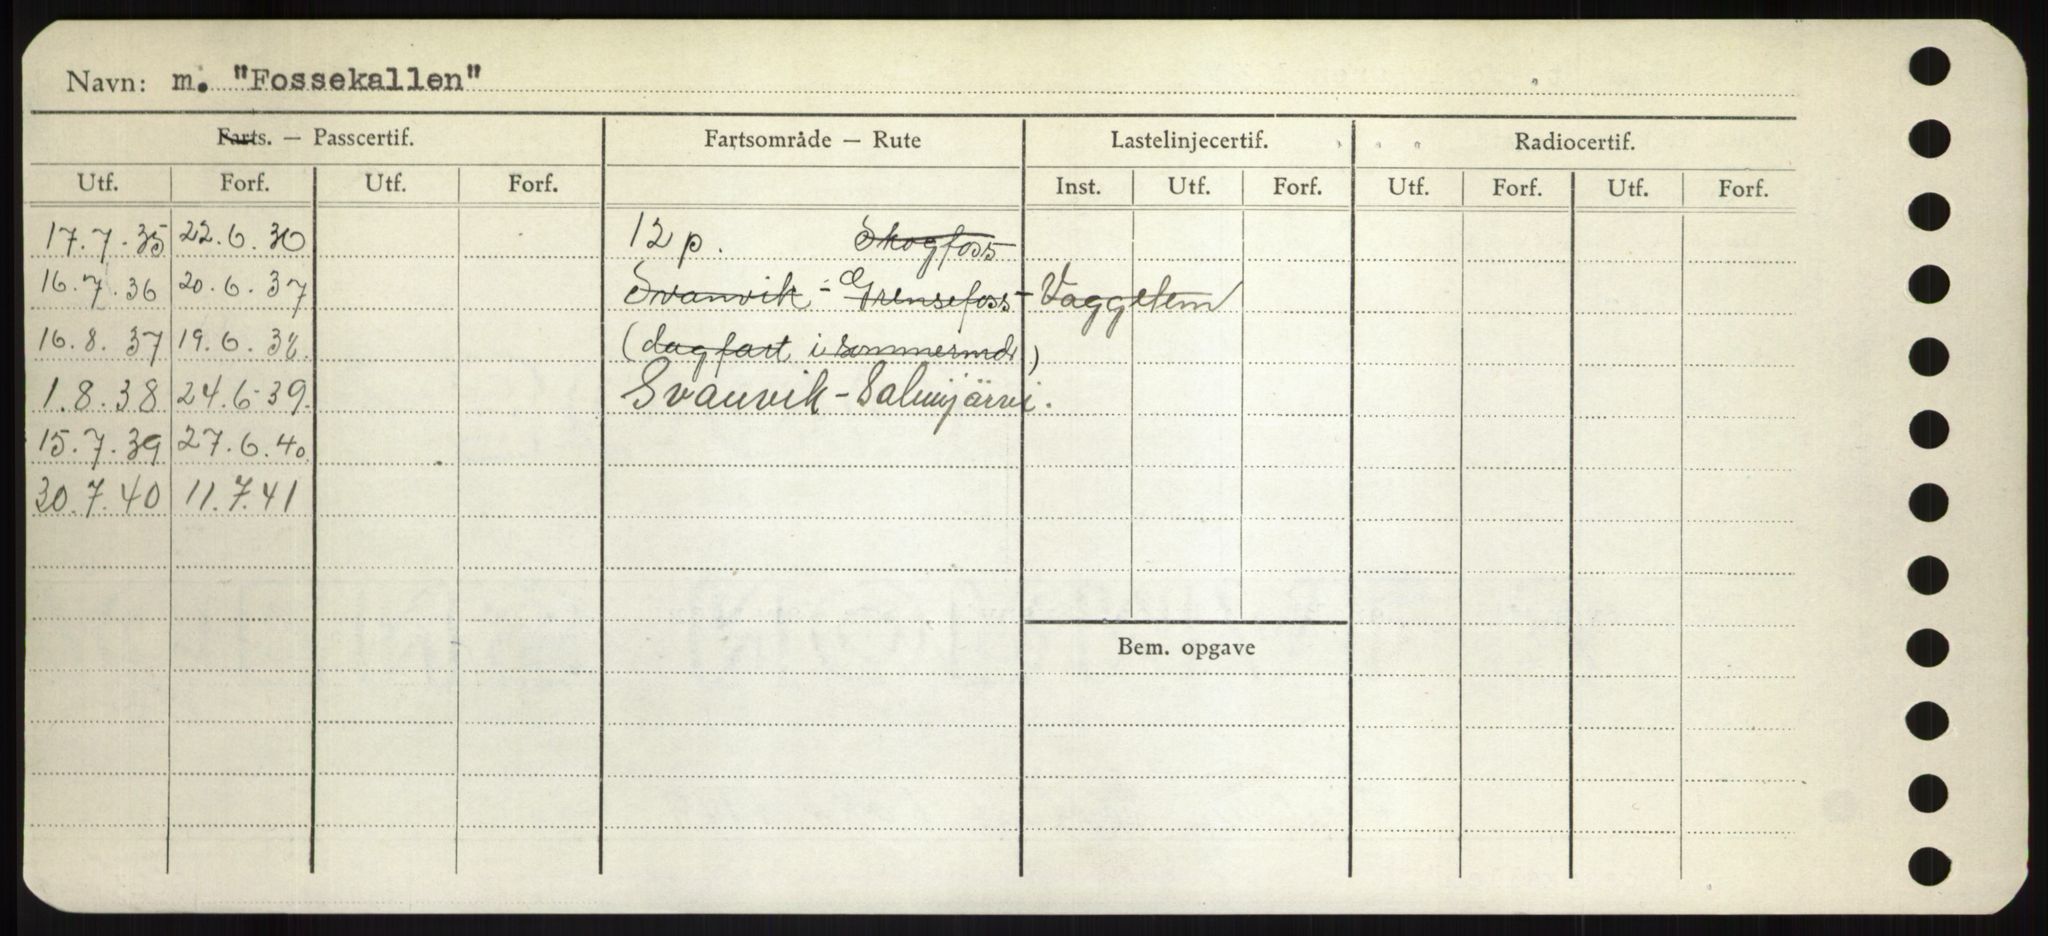 Navn: m. "Fossekallen"
Farts. — Passcertif. Fartsområde — Rute Lastelinjecertif. Radiocertif.
Utf. Forf. Utf. Forf. Inst. Utf. Forf. Utf. Forf. Utf. Forf.
17.7.35 22.6.36 12 p. Skogfoss
16.7.36 20.6.37 Svanvik - Grensefoss - Vaggetem
16.8.37 19.6.38. (dagfart i sommermdr)
1.8.38 24.6-39. Svanvik - Salmijärvi.
15.7.39 27.6.40.
30.7.40 11.7.41
Bem. opgave